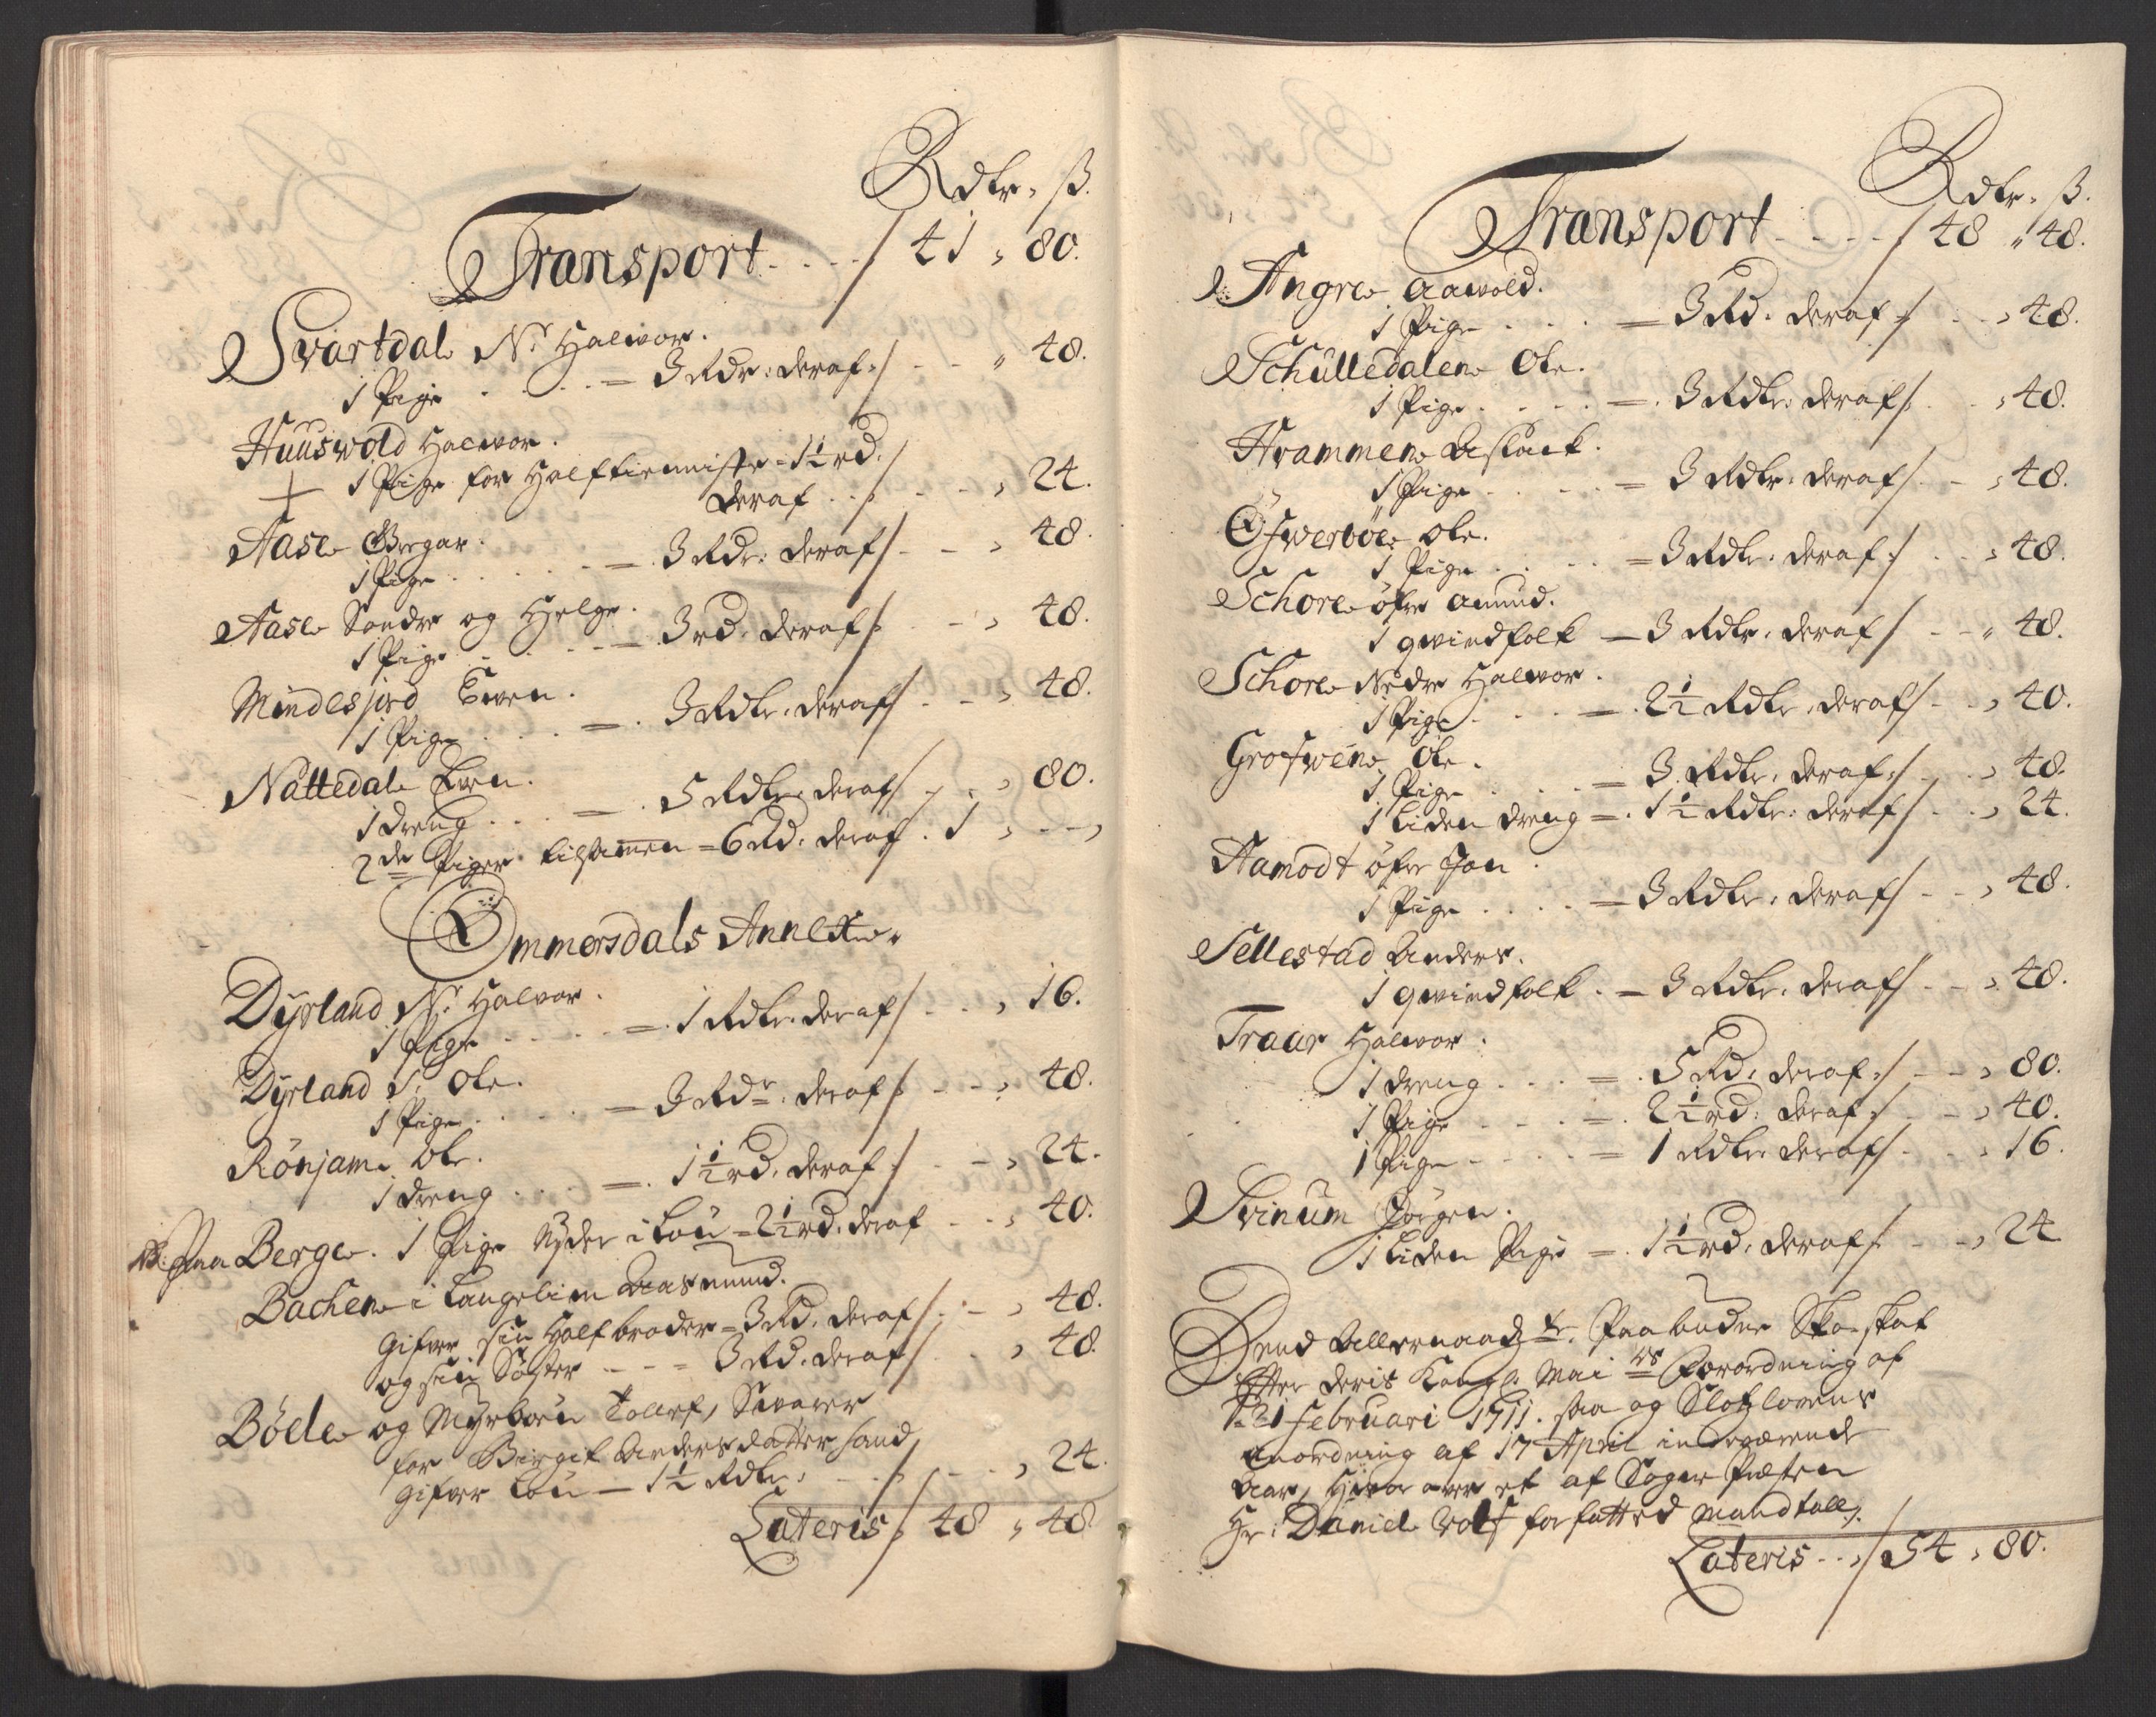 Rdlr. ß.
Transport .... / 41 , 80.
Svartdal N: Halvor.
1 Pige . . . = 3 Rdr: deraf / - - „ 48.
Huuswold Halvor.
1 Pige for Halftienniste = 1½ rd.
deraf . . / - - , 24.
Aase Gregar.
1 Pige . . . = 3 Rdr: deraf / - - , 48.
Aase Sondre og Helge.
1 Pige . . . = 3 rd. deraf / - , 48.
Mindesjord Swen.
1 Pige . . . = 3 Rdlr. deraf / - - , 48.
Nattedal
1 dreng . . . = 5 Rdlr. deraf / - , 80.
2de Piger tilsammen = 6 Rd. deraf . 1 , - - ,
Ommersdals Annex.
Dyrland N: Halvor.
1 Pige . . . = 1 Rdlr. deraf / - - , 16.
Dyrland S. Ole.
1 Pige . . . = 3 Rdr. deraf / - - , 48.
Rönjam Ole.
1 dreng . . . = 1½ rd. deraf / - - , 24.
NB. Paa Berge. 1 Pige Nyder i Lön = 2½ rd. deraf . . , 40.
Bachen i Langelim Aasmund.
Gifver sin Halfbroder = 3 Rd. deraf / - - , 48.
og sin Söster - - = 3 Rd. deraf / - , 48.
Böele og Myrboen Tollef, Swarer
for Birgit Andersdatter hand
Gifver Lön = 1½ Rdlr: - - / - - , 24.
Lateris / 48 , 48
Rdlr. ß.
Transport . - - - / 48 „ 48.
Angre Aawold.
1 Pige . . . = 3 Rd. deraf / - - , 48.
Schulledalen Ole.
1 Pige . . . = 3 Rdlr: deraf / . . , 48.
Hrammen Aslack.
1 Pige . . . = 3 Rdlr. deraf / . - , 48.
Öfwerböe Ole.
1 Pige . . . = 3 Rdlr. deraf / . . , 48.
Schore öfre Amund.
1 qwindfolk = 3 Rdlr. deraf / - - „ 48.
Schore Nedre Halwor.
1 Pige . . . = 2½ Rdlr. deraf / - - , 40.
Grofwen Ole.
1 Pige . . . = 3 Rdlr. deraf / . . , 48.
1 liden dreng = 1½ Rdlr. deraf / . . , 24.
Aamodt öfre Jon
1 Pige . . . = 3 Rdlr. deraf / - - , 48.
Sellestad Anders.
1 qwindfolk . = 3 Rdlr. deraf / - - , 48.
Traar Halwor.
1 dreng . . . = 5 Rd. deraf / - - , 80.
1 Pige - - . = 2½ rd. deraf / . - , 40.
1 Pige - - . . = 1 Rdlr deraf / . . , 16.
Svinum Jörgen.
1 liden Pige = 1½ rd. deraf / - - , 24
Dend Allernaadst. Paabudne Sko-skat
Efter Deris Kongl. Mai ts Forordning af
d. 21 Februari 1711. saa og Slotslovens
Anordning af 17 April indeværende
Aar, Hvor over et af Sogne Præsten
Hr: Daniel Wolf forfatted Mandtall.
Lateris - - / 54 , 80.